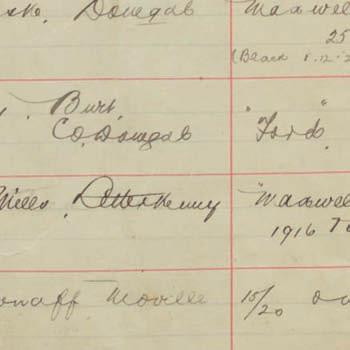 Donegal Maxwell
25
(Black 8.12.2
Burt,
Co. Donegal "Ford"
Mills, Letterkenny "Maxwell
1916 To
onaff Moville 15/20